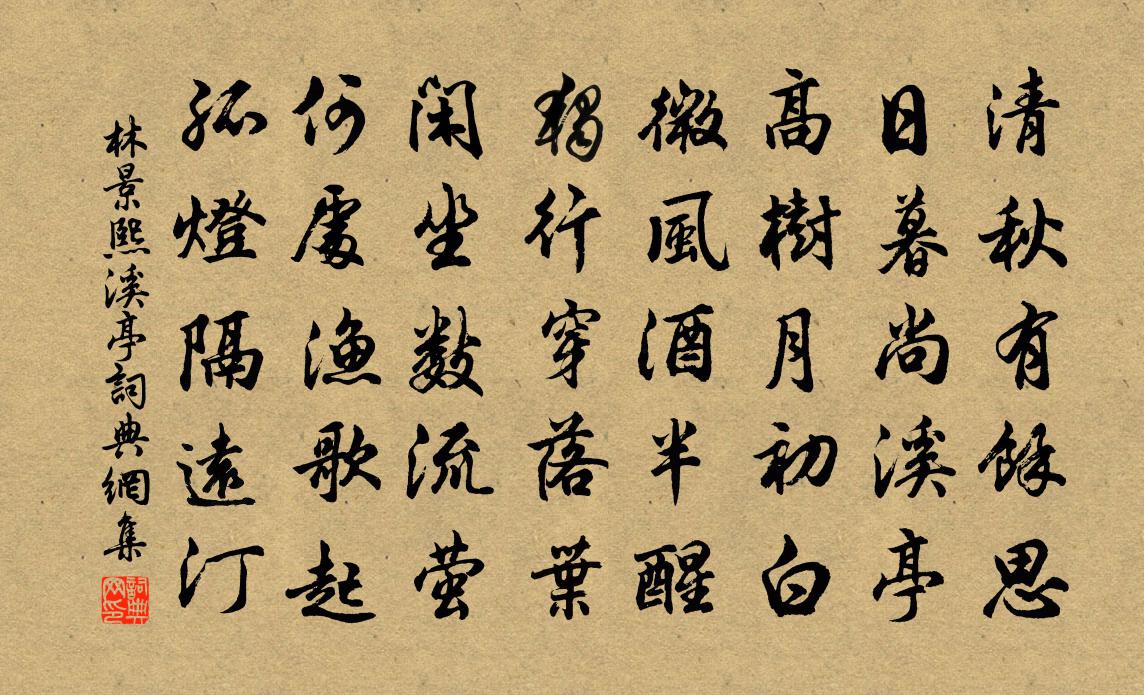 清秋有餘思
日暮尚溪亭
高樹月初白
微風酒半醒
獨行穿落葉
閑坐數流螢
何處漁歌起
孤燈隔遠汀
林景熙溪亭詞典網集
詞典網印